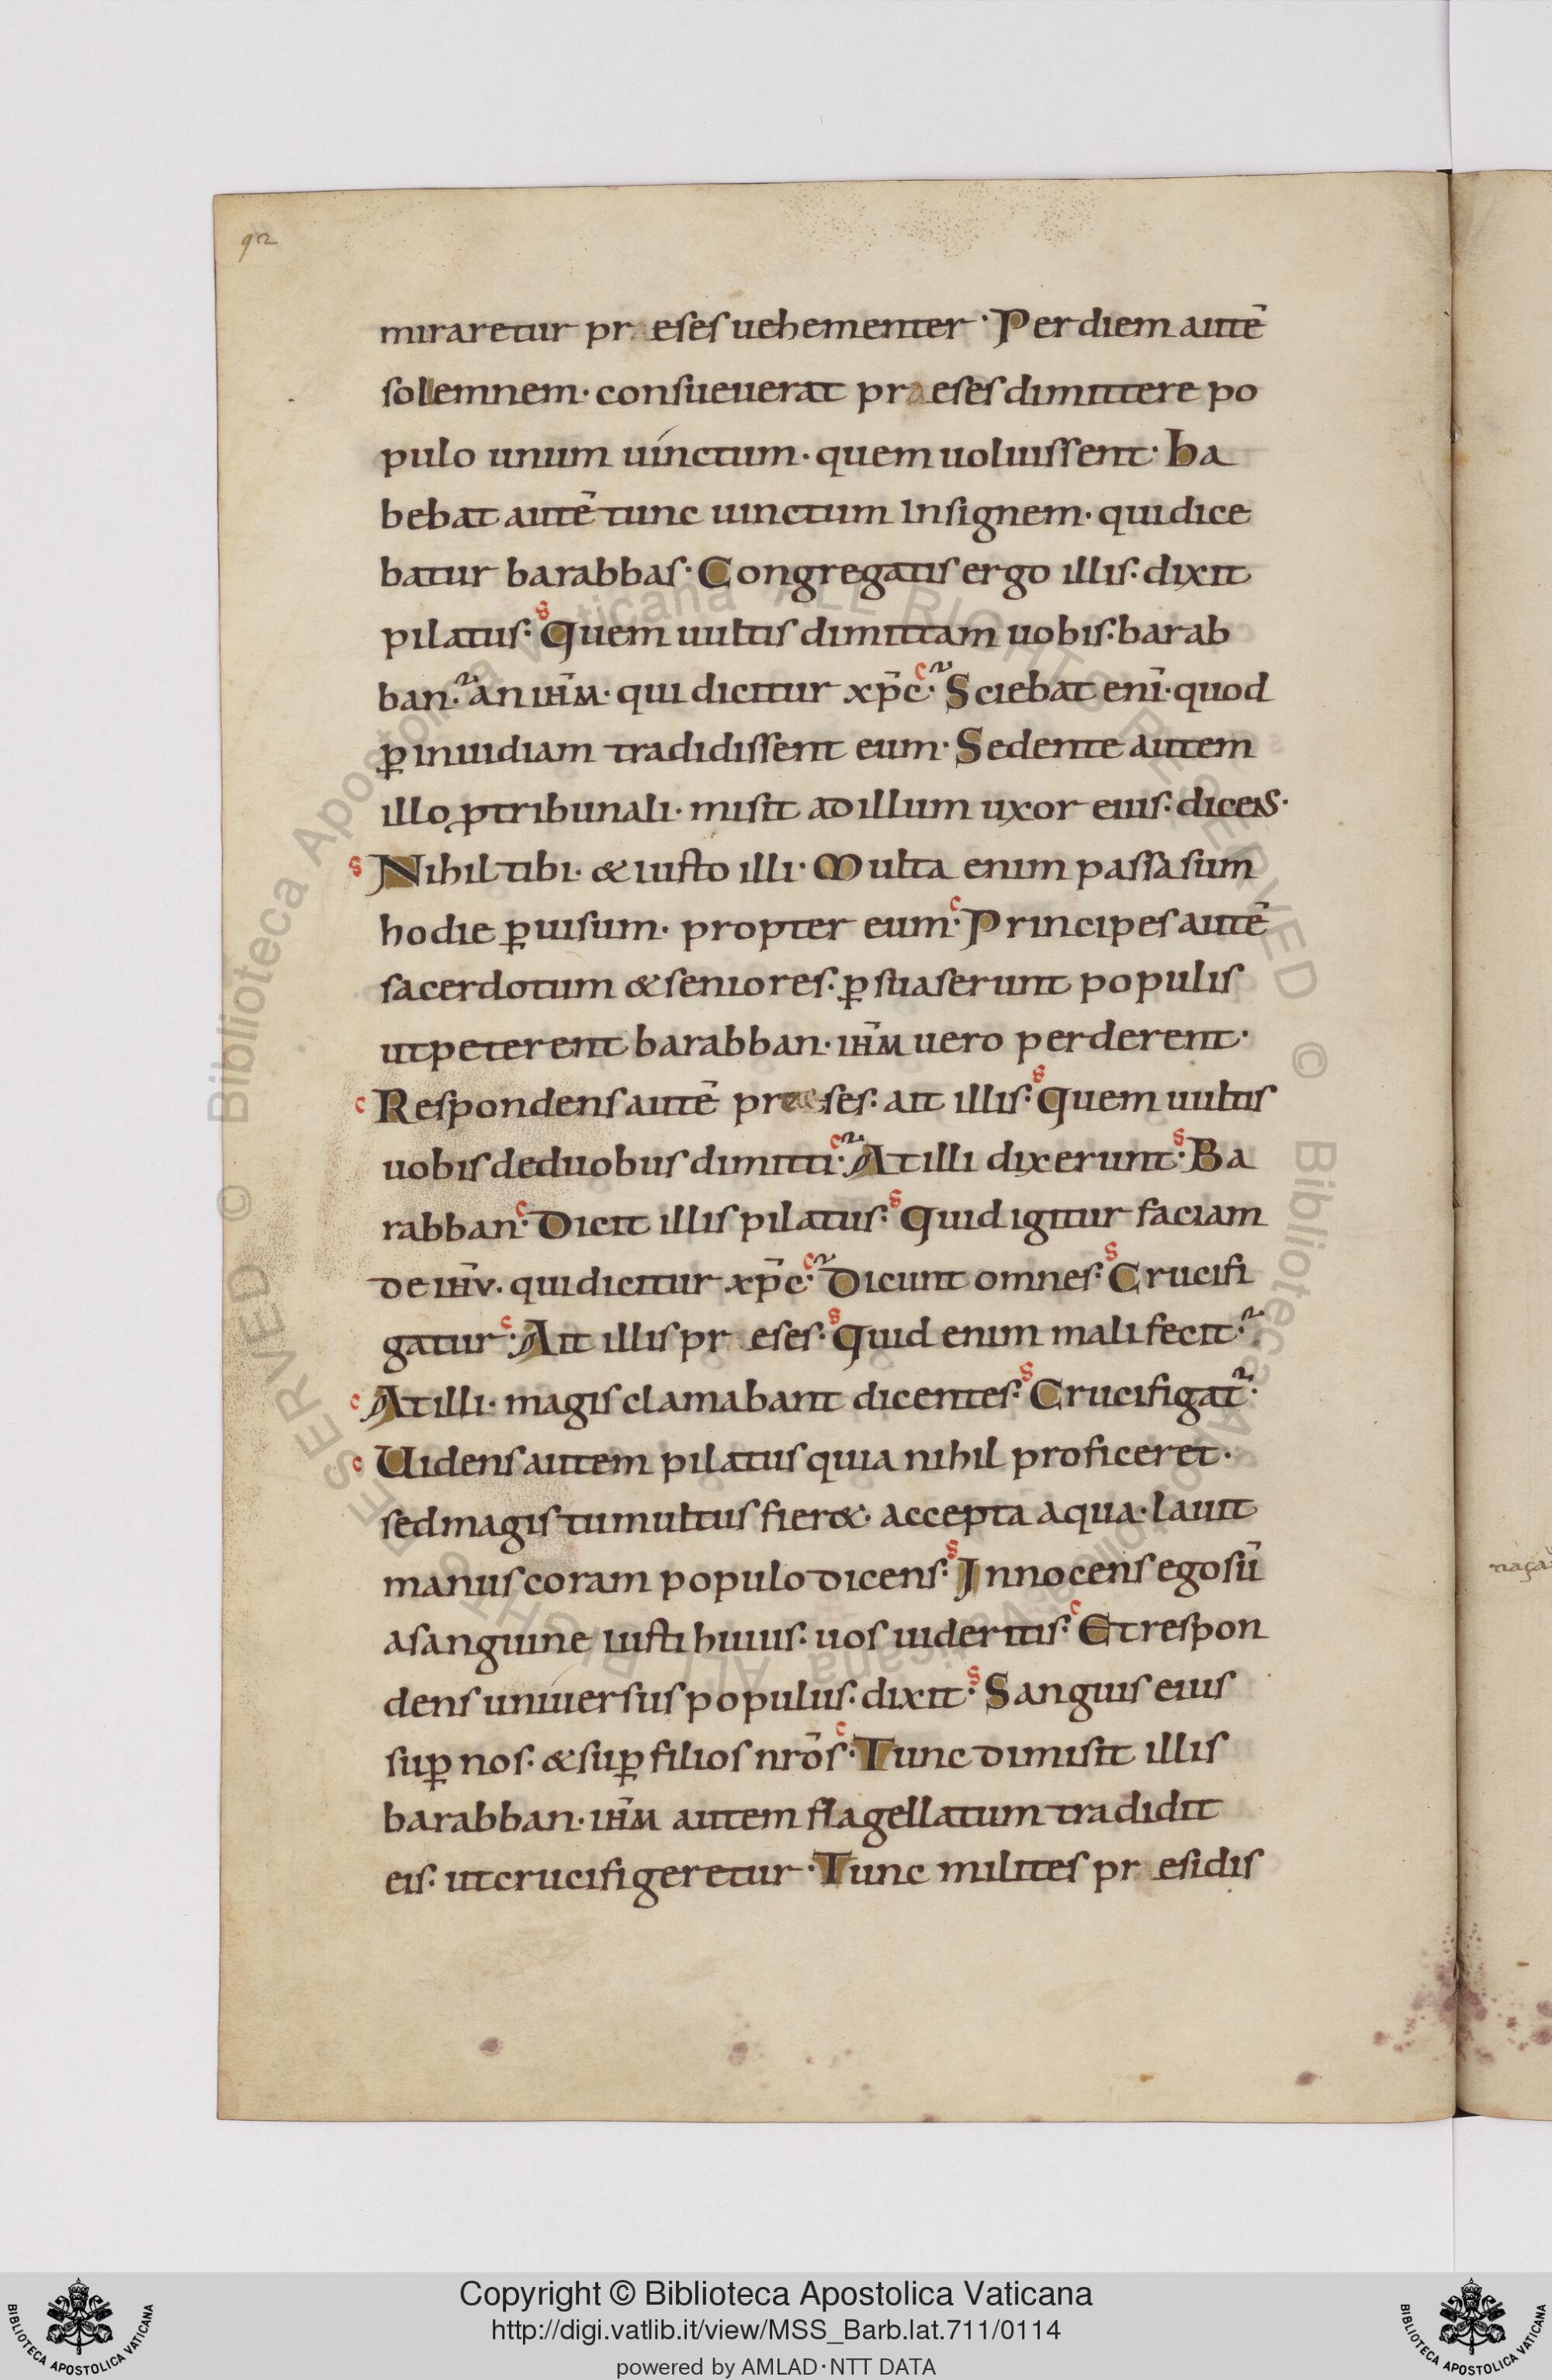 92
miraretur pr eses uehementer · Per diem autē
sollemnem · consueuerat praeses dimittere po
pulo unum uinctum · quem uoluissent · ha
bebat autē tunc uinctum insignem · qui dice
batur barabbas · Congregatis ergo illis · dixit
pilatus · s Quem uultis dimittam uobis · barab
ban · an ihm̄ · qui dicitur xp̄c · c Sciebat enī · quod
ꝑ inuidiam tradidissent eum · Sedente autem
illo ꝓ tribunali · misit ad illum uxor eius · dicens ·
s Nihil tibi · & iusto illi · Multa enim passa sum
hodie ꝑ uisum · propter eum · c Principes autē
sacerdotum & seniores · ꝑsuaserunt populis
ut peterent barabban · ihm̄ uero perderent ·
c Respondens autē praeses · ait illis · s Quem uultis
uobis de duobus dimitti · c At illi dixerunt · s Ba
rabban · c Dicit illis pilatus · s Quid igitur faciam
de ihū · qui dicitur xp̄c · c Dicunt omnes · s Crucifi
gatur · c Ait illis pr eses · s Quid enim mali fecit ·
c At illi · magis clamabant dicentes · s Crucifigat ·
c Uidens autem pilatus quia nihil proficeret ·
sed magis tumultus fier& · accepta aqua · lauit
manus coram populo dicens · s Innocens ego sū
a sanguine iusti huius · uos uideritis · c Et respon
dens uniuersus populus · dixit · s Sanguis eius
suꝑ nos · & suꝑ filios nrōs · c Tunc dimisit illis
barabban · ihm̄ autem flagellatum tradidit
eis · ut crucifigeretur · Tunc milites pr esidis
Copyright © Biblioteca Apostolica Vaticana
http://digi.vatlib.it/view/MSS_Barb.lat.711/0114
powered by AMLAD·NTT DATA
BIBLIOTECA APOSTOLICA VATICANA
BIBLIOTECA APOSTOLICA VATICANA
© Biblioteca Apostolica Vaticana ALL RIGHTS RESERVED
© Biblioteca Apostolica Vaticana ALL RIGHTS RESERVED